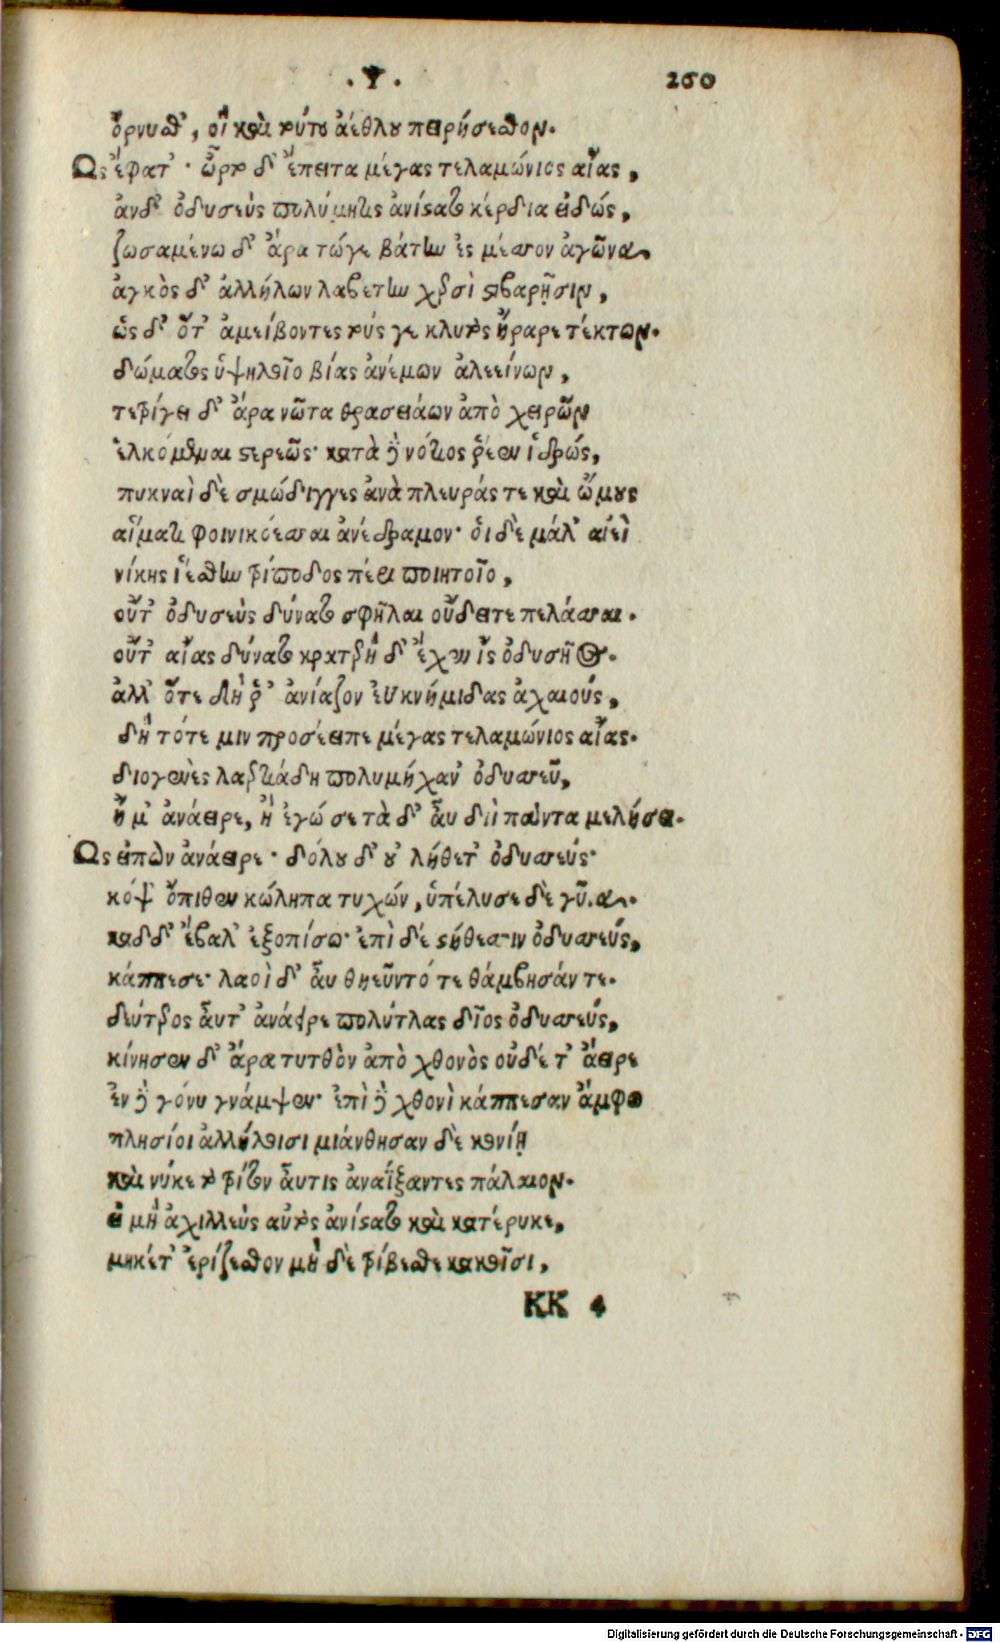 .Ψ. 260
ὄρνυσθ', οἳ καὶ τούτου ἀέθλου πειρήσεσθον.
Ως ἔφατ'· ὦρτο δ' ἔπειτα μέγας τελαμώνιος αἴας,
ἂν δ' ὀδυσεὺς πολύμητις ἀνίστατο κέρδια εἰδώς,
ζωσαμένω δ' ἄρα τώγε βάτην ἐς μέσσον ἀγῶνα.
ἀγκὰς δ' ἀλλήλων λαβέτην χερσὶ στιβαρῇσιν,
ὡς δ' ὅτ' ἀμείβοντες τούς γε κλυτὸς ἤραρε τέκτων.
δώματος ὑψηλοῖο βίας ἀνέμων ἀλεείνων,
τετρίγει δ' ἄρα νῶτα θρασειάων ἀπὸ χειρῶν
ἑλκόμεναι στερεῶς· κατὰ δὲ νότιος ῥέεν ἱδρώς,
πυκναὶ δὲ σμώδιγγες ἀνὰ πλευράς τε καὶ ὤμους
αἵματι φοινικόεσσαι ἀνέδραμον· ὁι δὲ μάλ' αἰεὶ
νίκης ἱέσθην τρίποδος πέρι ποιητοῖο,
οὔτ' ὀδυσεὺς δύνατο σφῆλαι οὔδει τε πελάσσαι.
οὔτ' αἴας δύνατο κρατερὴ δ' ἔχεν ἲς ὀδυσῆος.
ἀλλ' ὅτε δή ῥ' ἀνίαζον ἐυκνήμιδας ἀχαιούς,
δὴ τότε μιν προσέειπε μέγας τελαμώνιος αἴας.
διογενὲς λαερτιάδη πολυμήχαν' ὀδυσσεῦ,
ἤ μ' ἀνάειρε, ἢ ἐγώ σε τὰ δ' ἂυ διὶ πάντα μελήσει.
Ως εἰπὼν ἀνάειρε· δόλου δ' οὐ λήθετ' ὀδυσσεύς·
κόψ' ὄπιθεν κώληπα τυχών, ὑπέλυσε δὲ γυῖα.
καδδ' ἔβαλ' ἐξοπίσω· ἐπὶ δὲ στήθεσσιν ὀδυσσεύς,
κάππεσε· λαοὶ δ' ἂυ θηεῦντό τε θάμβησάν τε.
δεύτερος ἂυτ' ἀνάειρε πολύτλας δῖος ὀδυσσεύς,
κίνησεν δ' ἄρα τυτθὸν ἀπὸ χθονὸς οὐδέ τ' ἄειρε
ἐν δὲ γόνυ γνάμψεν· ἐπὶ δὲ χθονὶ κάππεσαν ἄμφω
πλησίοι ἀλλήλοισι μιάνθησαν δὲ κονίῃ
καὶ νύκε τὸ τρίτον ἂυτις ἀναΐξαντες πάλαιον.
εἰ μὴ ἀχιλλεὺς αὐτὸς ἀνίστατο καὶ κατέρυκε,
μηκέτ' ἐρίζεσθον μὴ δὲ τρίβεσθε κακοῖσι,
KK 4
Digitalisierung gefördert durch die Deutsche Forschungsgemeinschaft - DFG